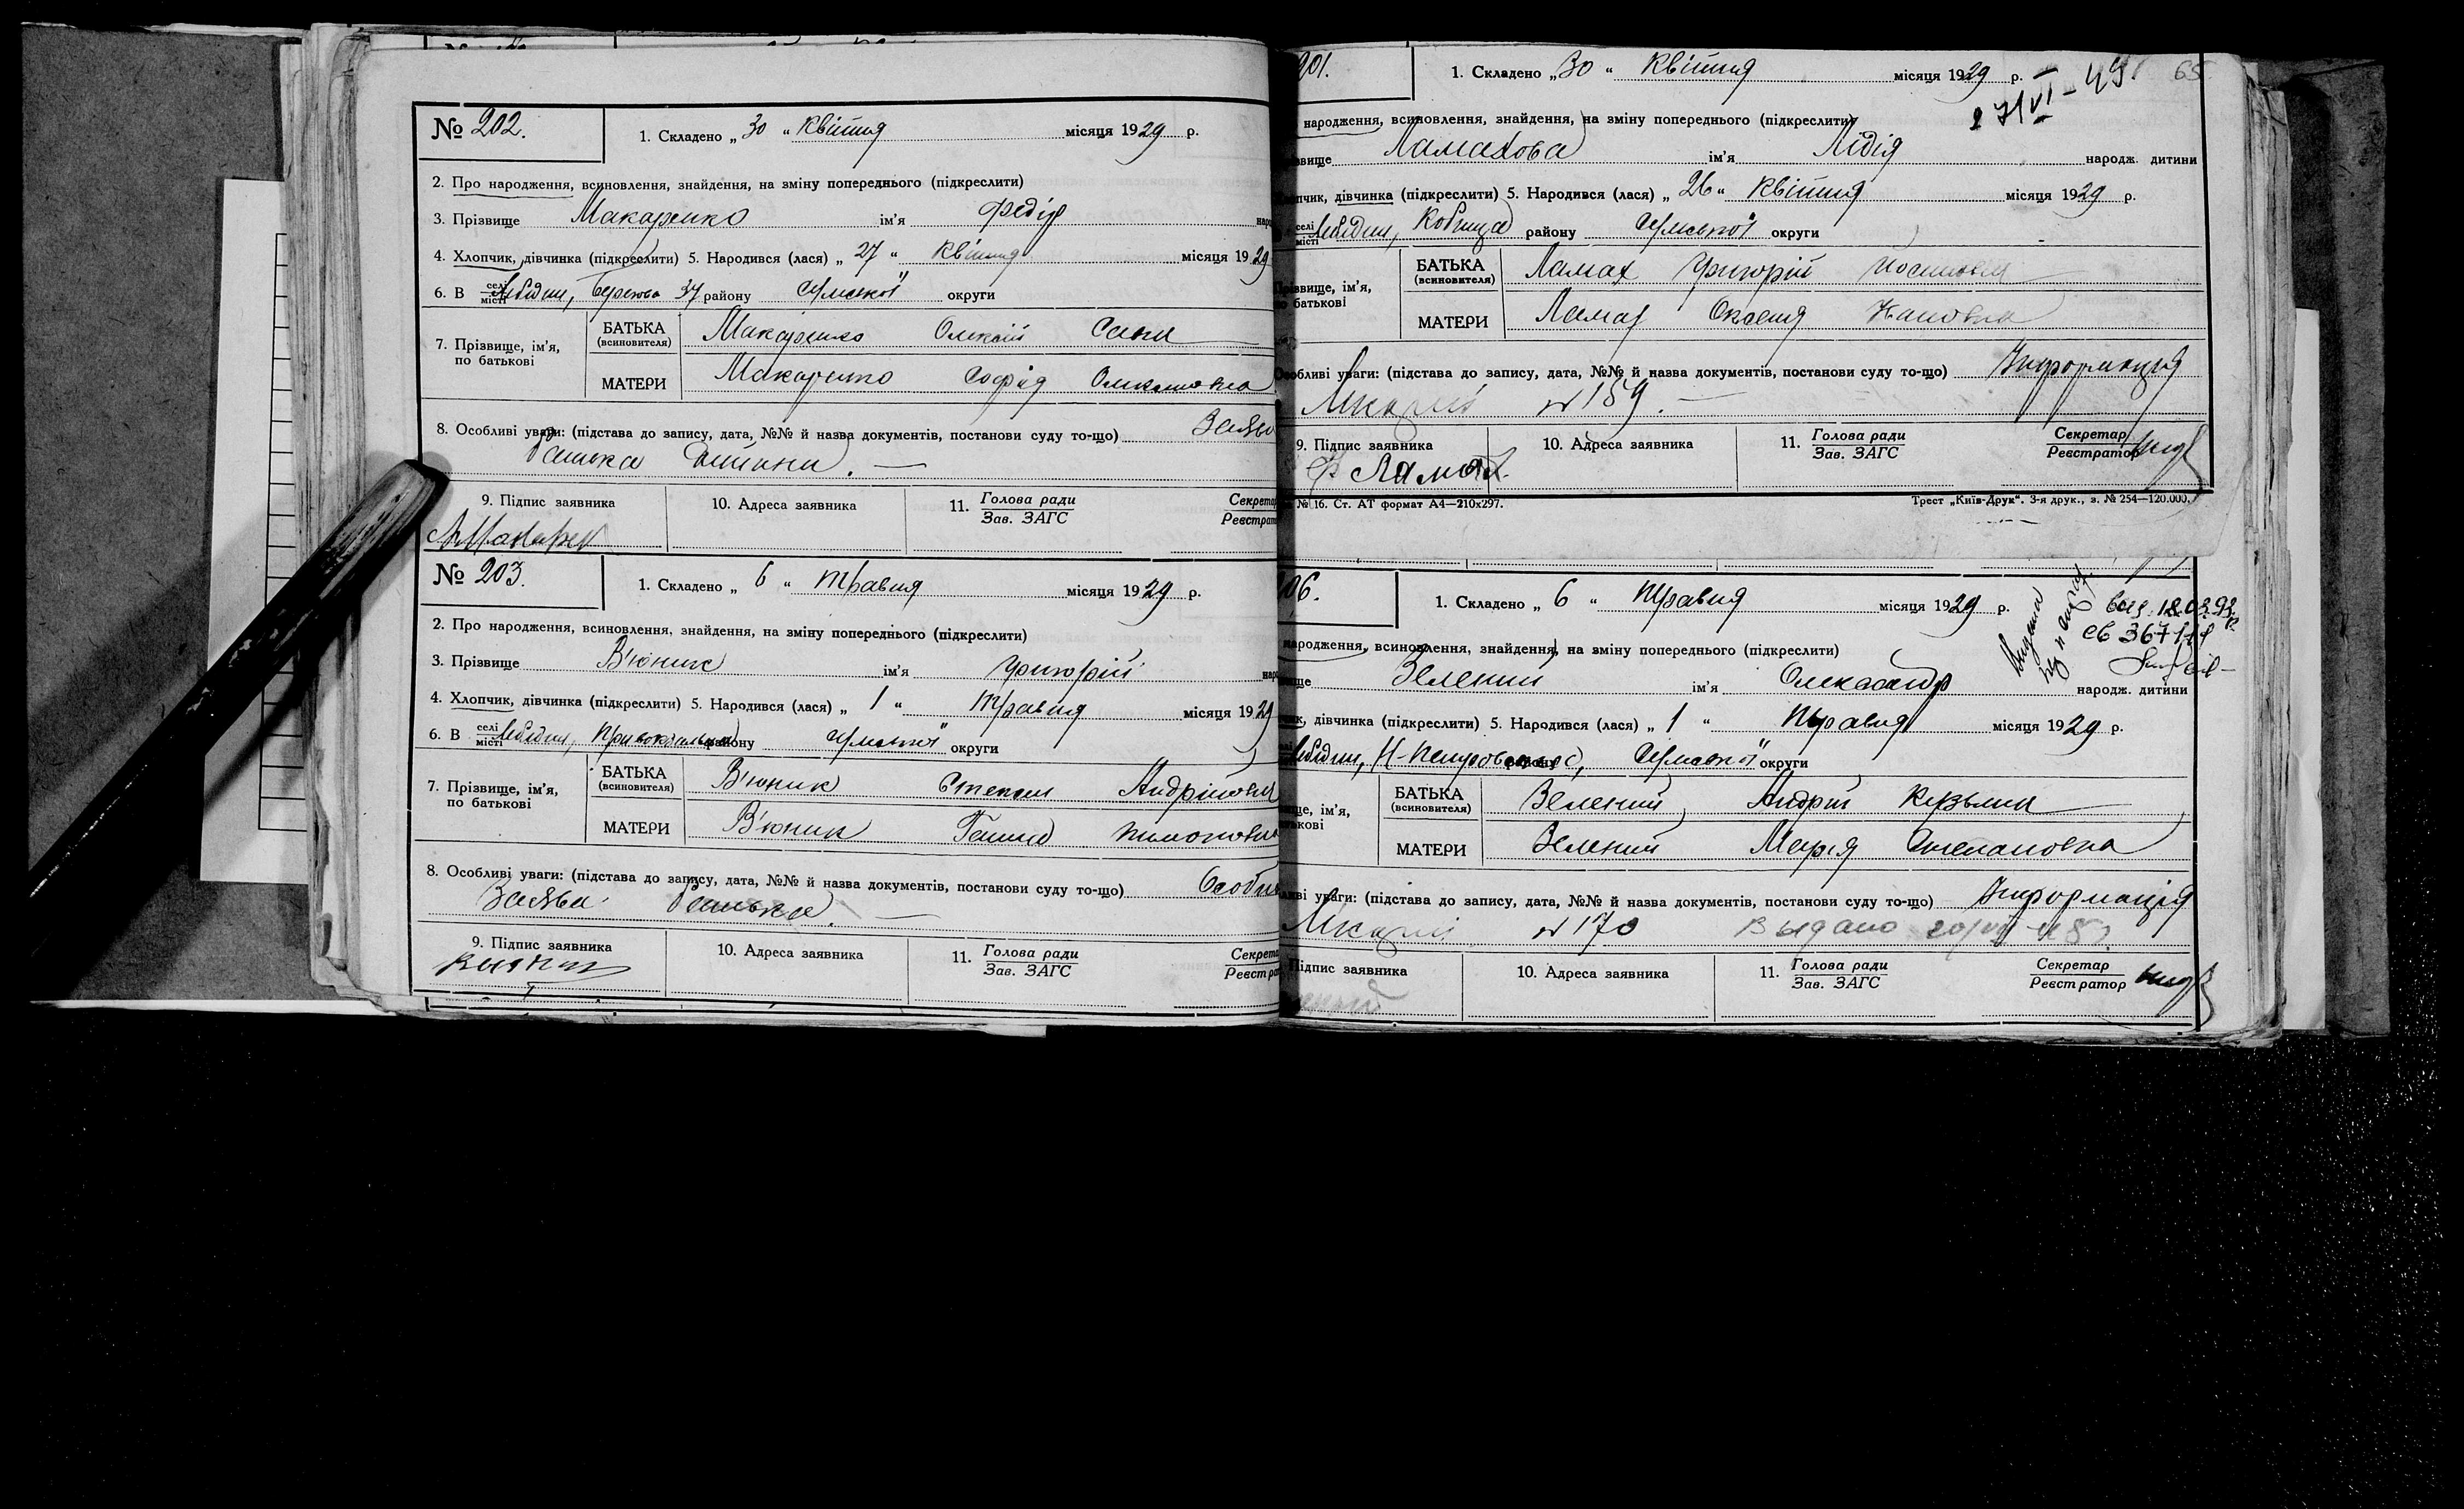 № 202.
1. Складено „ 30 “ квітня місяця 1929 р.
2. Про народження, всиновлення, знайдення, на зміну попереднього (підкреслити)
3. Прізвище Макаренко ім'я Федір
4. Хлопчик, дівчинка (підкреслити) 5. Народився (лася) „ 27 “ квітня місяця 1929
6. В селі місті Лебедин, 37 району Сумської округи
7. Прізвище, ім'я, по батькові
БАТЬКА (всиновителя) Макаренко Олексій
МАТЕРИ Макаренко Софія
8. Особливі уваги: (підстава до запису, дата, №№ й назва документів, постанови суду то-що) Заява
батька дитини. —
9. Підпис заявника 10. Адреса заявника 11. Голова ради Зав. ЗАГС
№ 203.
1. Складено „ 6 “ травня місяця 1929 р.
2. Про народження, всиновлення, знайдення, на зміну попереднього (підкреслити)
3. Прізвище В'юник ім'я Григорій
4. Хлопчик, дівчинка (підкреслити) 5. Народився (лася) „ 1 “ травня місяця 1929
6. В селі місті Лебедин, Привокзальна району Сумської округи
7. Прізвище, ім'я, по батькові
БАТЬКА (всиновителя) В'юник Степан Андрійович
МАТЕРИ В'юник Ганна
8. Особливі уваги: (підстава до запису, дата, №№ й назва документів, постанови суду то-що)
Заява батька. —
9. Підпис заявника 10. Адреса заявника 11. Голова ради Зав. ЗАГС
201. 1. Складено „ 30 “ квітня місяця 1929 р.
65
народження, всиновлення, знайдення, на зміну попереднього (підкреслити)
Ламахова ім'я Лідія народж. дитини
дівчинка (підкреслити) 5. Народився (лася) „ 26 “ квітня місяця 1929 р.
селі місті Лебедин, району Сумської округи
Прізвище, ім'я, по батькові
БАТЬКА (всиновителя) Ламах Григорій Йосипович
МАТЕРИ Ламах Оксенія
Особливі уваги: (підстава до запису, дата, №№ й назва документів, постанови суду то-що) Інформация
Лікарні № 159. —
9. Підпис заявника 10. Адреса заявника 11. Голова ради Зав. ЗАГС Секретар Реєстратор
Ламах
№ 16. Ст. АТ формат А4—210х297. Трест „Київ-Друк“. 3-я друк., з. № 254—120.000.
1. Складено „ 6 “ травня місяця 1929 р.
народження, всиновлення, знайдення, на зміну попереднього (підкреслити)
Зелений ім'я Олександр народж. дитини
дівчинка (підкреслити) 5. Народився (лася) „ 1 “ травня місяця 1929 р.
Лебедин, району Сумської округи
БАТЬКА (всиновителя) Зелений Андрій Кузьмич
МАТЕРИ Зелений Марія Степановна
уваги: (підстава до запису, дата, №№ й назва документів, постанови суду то-що) Інформація
Лікарні № 170 Выдано
Підпис заявника 10. Адреса заявника 11. Голова ради Зав. ЗАГС Секретар Реєстратор